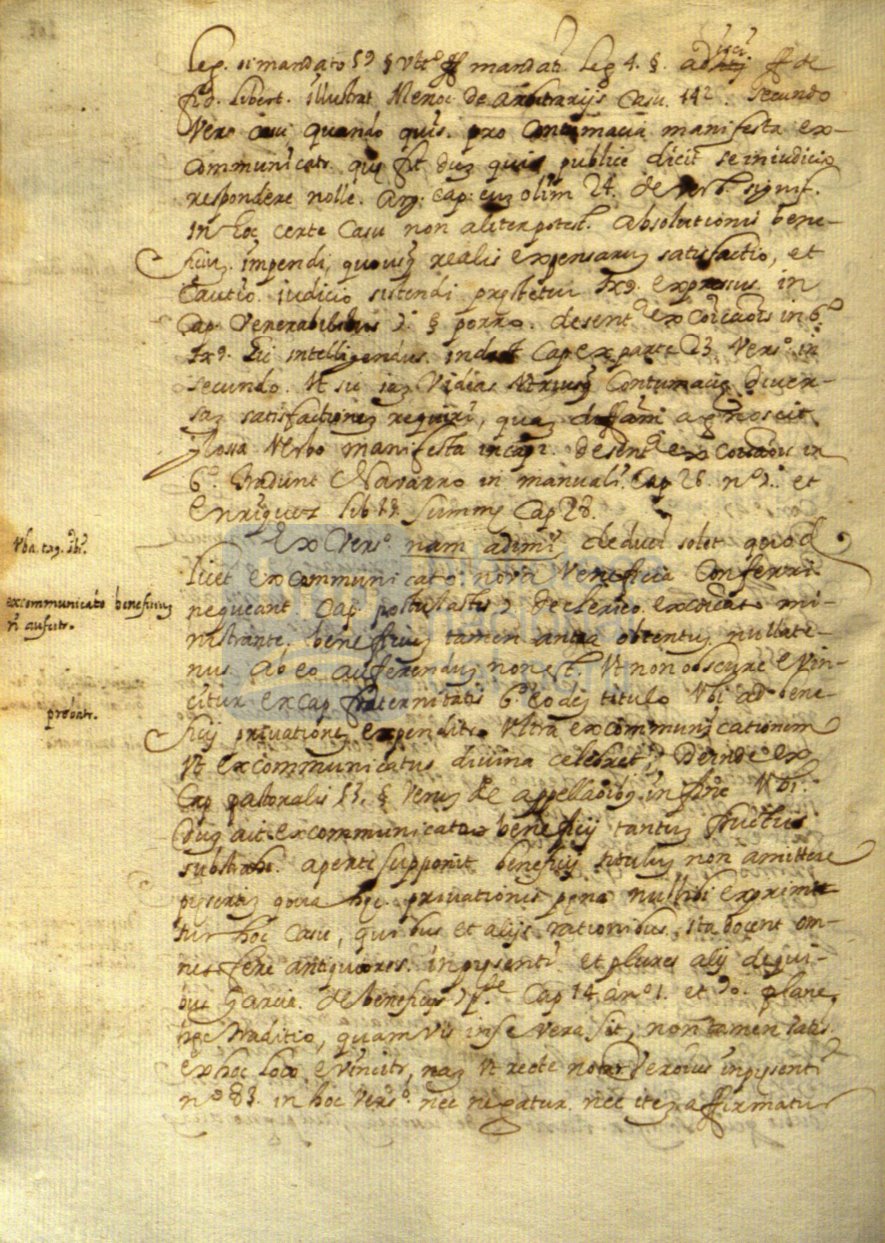 leg. si mandato 59 § Vlt.º ff mandati. leg 4. § ff de
fid. libert. illustrat Menoc de Arbitrarijs Casu. 142. Secundo
Vers. casu quando quis. pro Contumacia manifesta ex-
communicatr. quę fit duʒ quis publice dicit se in iudicio
respondere nolle. arg. cap. cuʒ olim 24. de Verb. signif.
in hoc certe Casu non aliter potest. absolutionis bene-
ficiuʒ. impendi, quousqʒ realis expensaruʒ satisfactio, et
Cautio. iudicio sistendi pręstetur expressus. in
Cap. Venerabilibus § porro. de sent.ª excõicaõis in 6.º
intelligendus. Cap ex parte 23 Vers.º in
secundo. Vt sic iaʒ Videas Vtriusqʒ Contumacię diuer-
saʒ satisfactioneʒ requiri, quaʒ agnoscit
glossa Verbo manifesta in cap. de sent.ª excõicaõis in
6.º tradunt Navarro in manuali. Cap 26. nº et
Enriquez lib 13. summę Cap 28.
Ex Vers.º nam adimi deduci solet quod
licet excommunicato. nova Veneficia Conferri
nequeant Cap postulastis de clerico. excõicato mi-
nistrante, beneficiuʒ tamen antea obtentuʒ nullate-
nus ab eo auferenduʒ non est. Vt non obscure evin-
citur ex cap. fraternitatis 6.º eodeʒ titulo Vbi ad bene-
ficij privationeʒ expenditr. Vltra excommunicationem
Vt excommunicatus divina celebret, Deinde ex
Cap pastoralis 53. § Veruʒ de appellaõibʒ in fine Vbi.
duʒ ait excommunicato beneficij tantuʒ fructus
substrahi. aperte supponit beneficij tituluʒ non amittere
pręsertiʒ quia hęc. privationis pęna nullibi exprimi-
tur hoc Casu, quibus et alijs rationibus. ita docent om-
nes fere antiquiores. in pręsenti et plures alij de qui-
bus Garcia. de beneficijs Cap 14. á nº 1. et 90. plane,
hęc traditio, quamvis in se vera sit, non tamen satis
ex hoc loco evincitr, naʒ Vt recte notat in pręsenti
nº 83. in hoc Vers.º nec negatur. nec iteʒ affirmatur
Vba. tex. ibi.
excommunicato beneficiuʒ
ñ aufertr.
probatr.